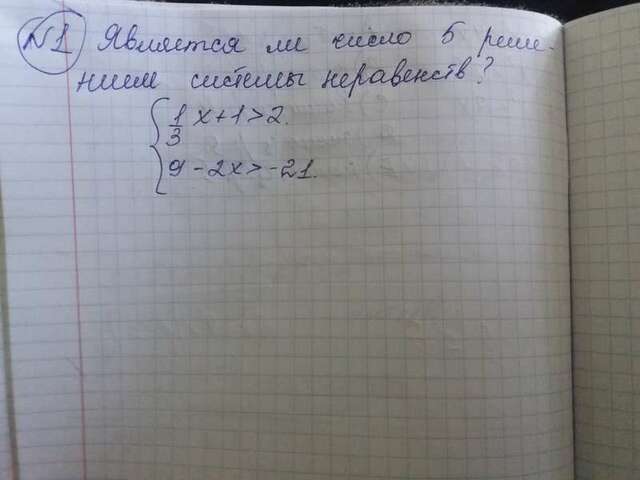 №1 Является ли число 5 реше-
нием системы неравенств?
{ 1/3 x+1>2.
9-2x>-21.